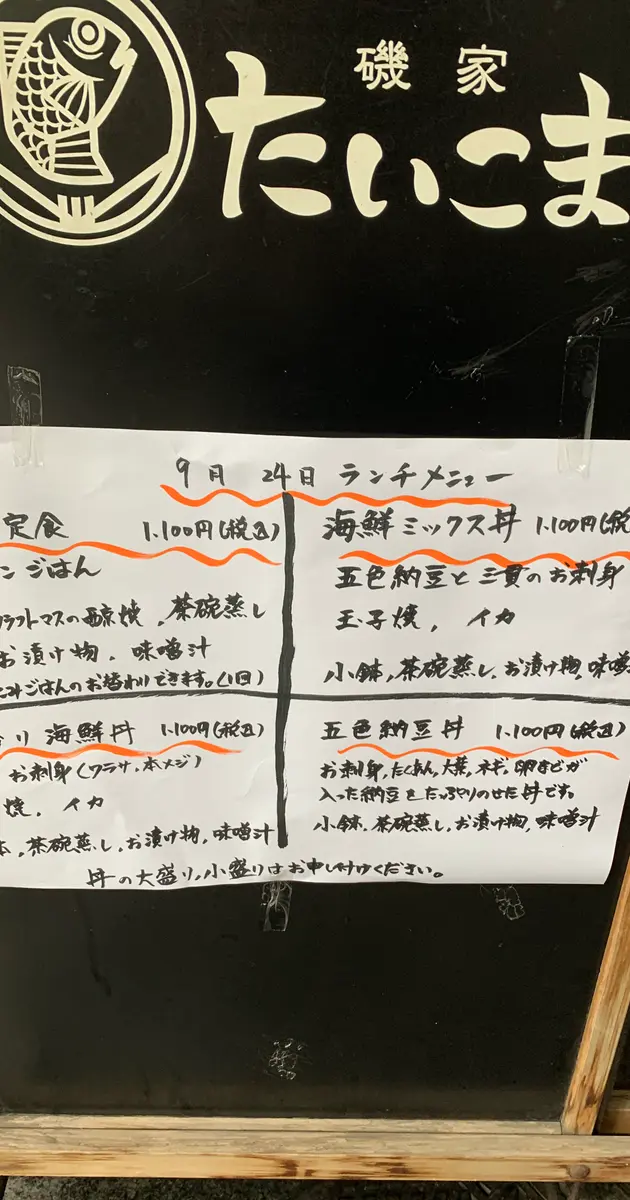 磯家
たいこま
9月 24日 ランチメニュー
定食 1.100円(税込)
ンジごはん
クラフトマスの西京焼, 茶碗蒸し
お漬け物, 味噌汁
ごはんのお替わりできます。(1回)
海鮮ミックス丼 1.100円(税
五色納豆と三貫のお刺身
玉子焼, イカ
小鉢, 茶碗蒸し, お漬け物, 味噌
り 海鮮丼 1.100円(税込)
お刺身(ワラサ, 本メジ)
焼, イカ
茶碗蒸し, お漬け物, 味噌汁
五色納豆丼 1.100円(税込)
お刺身, たくあん, 大葉, ネギ, 卵などが
入った納豆をたっぷりのせた丼です。
小鉢, 茶碗蒸し, お漬け物, 味噌汁
丼の大盛り, 小盛りはお申し付けください。